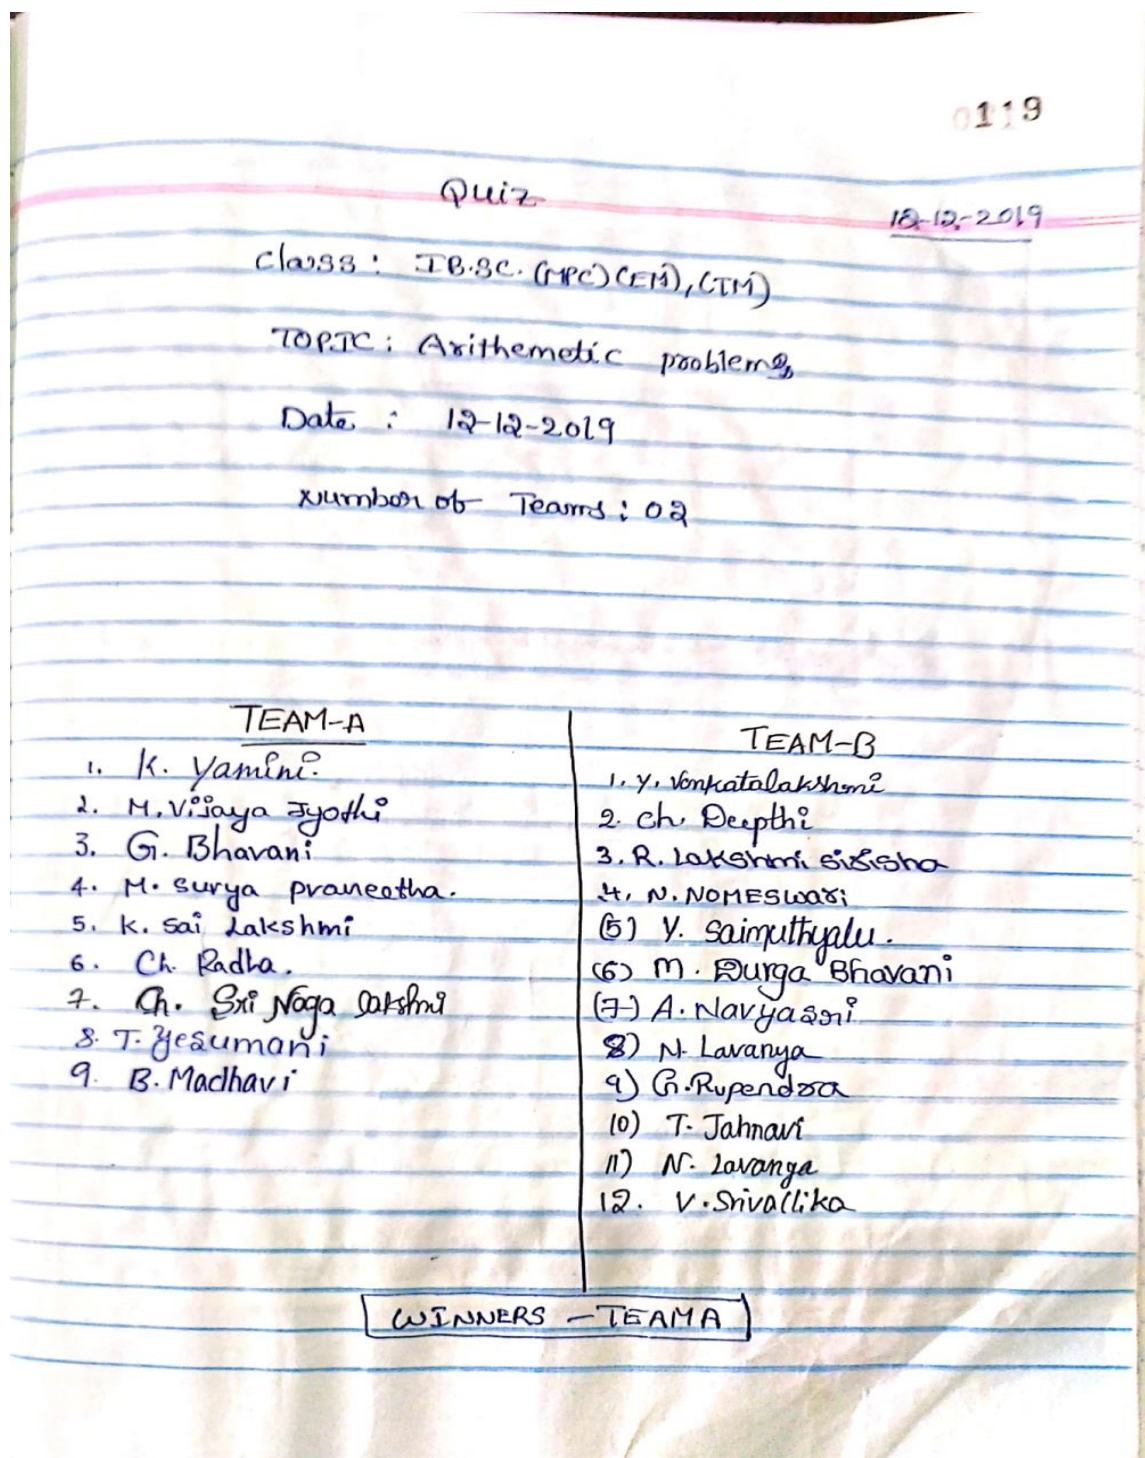 0119
Quiz
12-12-2019
Class: IB.SC. (MPC) (EM), (TM)
TOPIC: Arithemetic problems
Date : 12-12-2019
Number of Teams: 02
TEAM-A
1. K. Yamini.
2. M. Vijaya Jyothi
3. G. Bhavani
4. M. Surya praneetha.
5. K. Sai Lakshmi
6. Ch. Radha.
7. Ch. Sri Naga Lakshmi
8. T. Yesumani
9. B. Madhavi
TEAM-B
1. Y. Venkatalakshmi
2. Ch. Deepthi
3. R. Lakshmi sirisha
4. N. NOMESwari
(5) Y. Saimuthyalu.
(6) M. Durga Bhavani
(7) A. Navyasri
8) N. Lavanya
9) G. Rupendra
10) T. Jahnavi
11) N. Lavanya
12. V. Srivallika
WINNERS - TEAM A